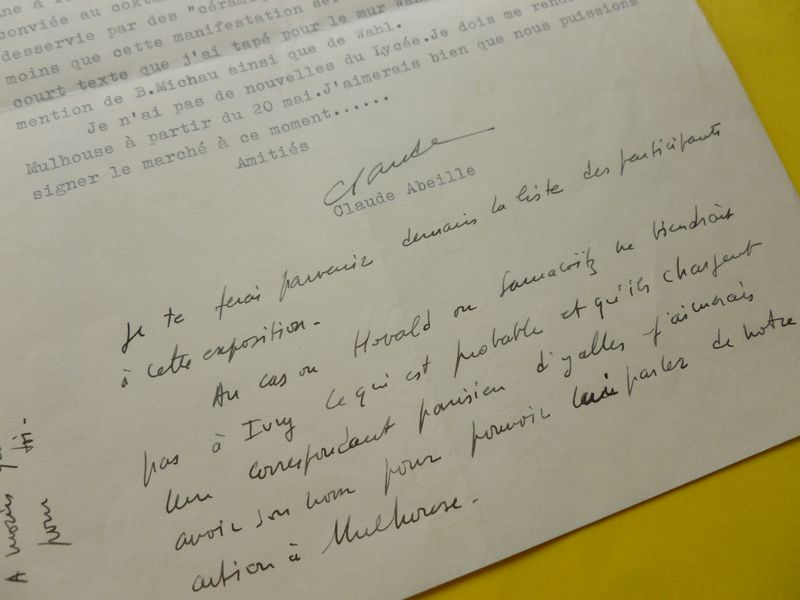 conviée au
desservie par des "céram
moins que cette manifestation
court texte que j'ai tapé pour le mur
mention de B.Michau ainsi que de Wahl.
Je n'ai pas de nouvelles du Lycée.Je dois me
Mulhouse à partir du 20 mai.J'aimerais bien que nous puissions
signer le marché à ce moment......
Amitiés
Claude
Claude Abeille
Je te ferai parvenir demain la liste des participants
à cette exposition.
Au cas où Hovald ou ne viendrait
pas à Ivry ce qui est probable et qu'ils chargent
leur correspondant parisien d'y aller j'aimerais
avoir son nom pour pouvoir lui parler de notre
action à Mulhouse.
A moins
pour